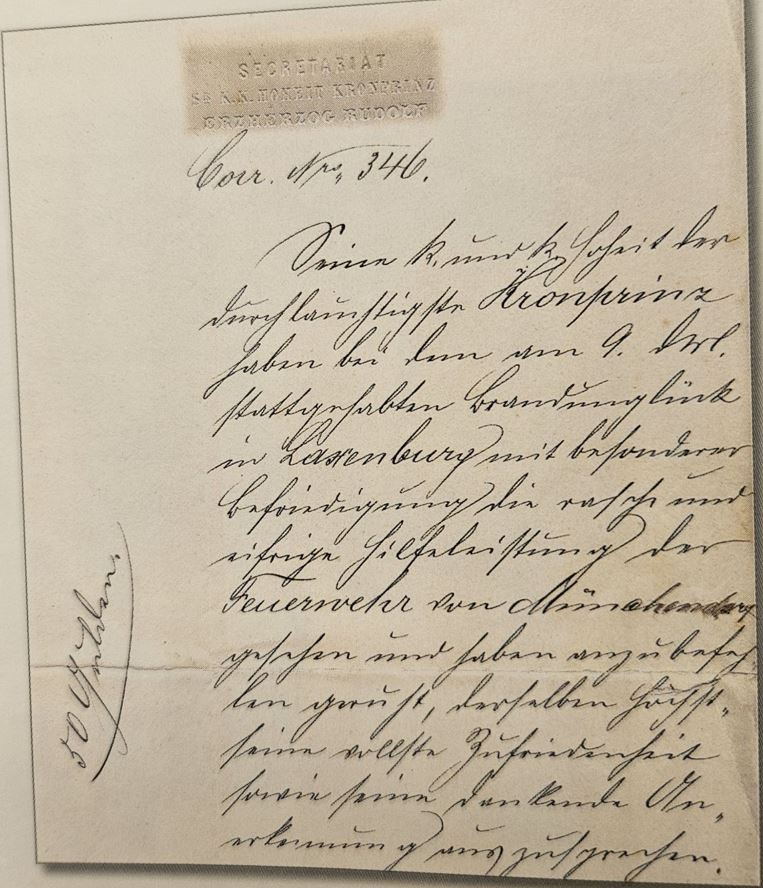 SECRETARIAT
Sr. K. K. HOHEIT KRONPRINZ
ERZHERZOG RUDOLF
Corr. Nro. 346.
Seine k. und k. Hoheit der
durchlauchtigste Kronprinz
haben bei dem am 9. dss.
stattgehabten Brandunglück
in Laxenburg mit besonderer
Befriedigung die rasche und
eifrige Hilfeleistung der
Feuerwehr von Münchendorf
gesehen und haben anzubefeh-
len geruht, derselben Höchst-
seine vollste Zufriedenheit
sowie seine dankende An-
erkennung auszusprechen.
50 Gulden.